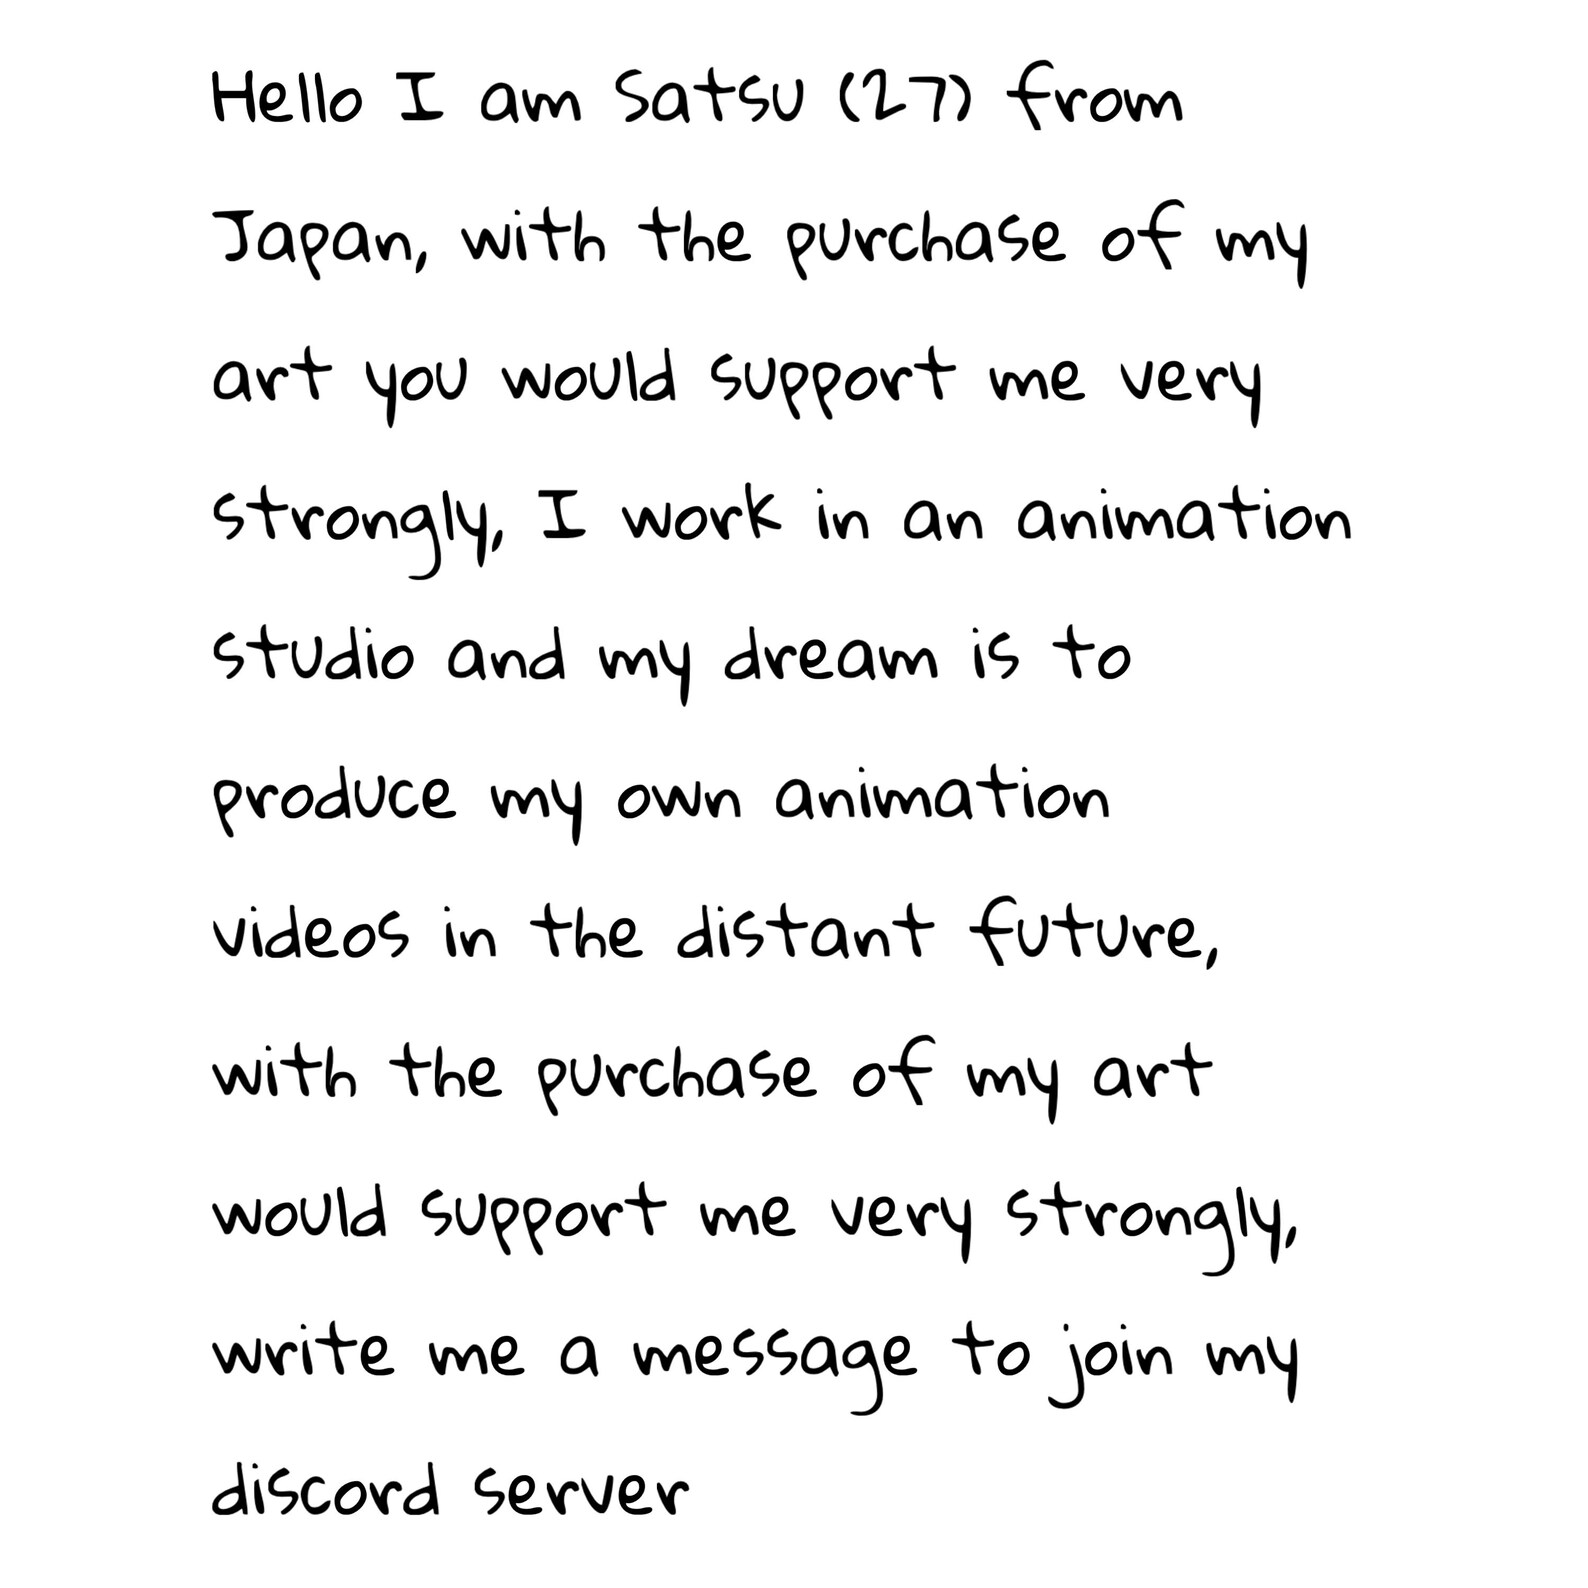 Hello I am Satsu (27) from
Japan, with the purchase of my
art you would support me very
strongly, I work in an animation
studio and my dream is to
produce my own animation
videos in the distant future,
with the purchase of my art
would support me very strongly,
write me a message to join my
discord server